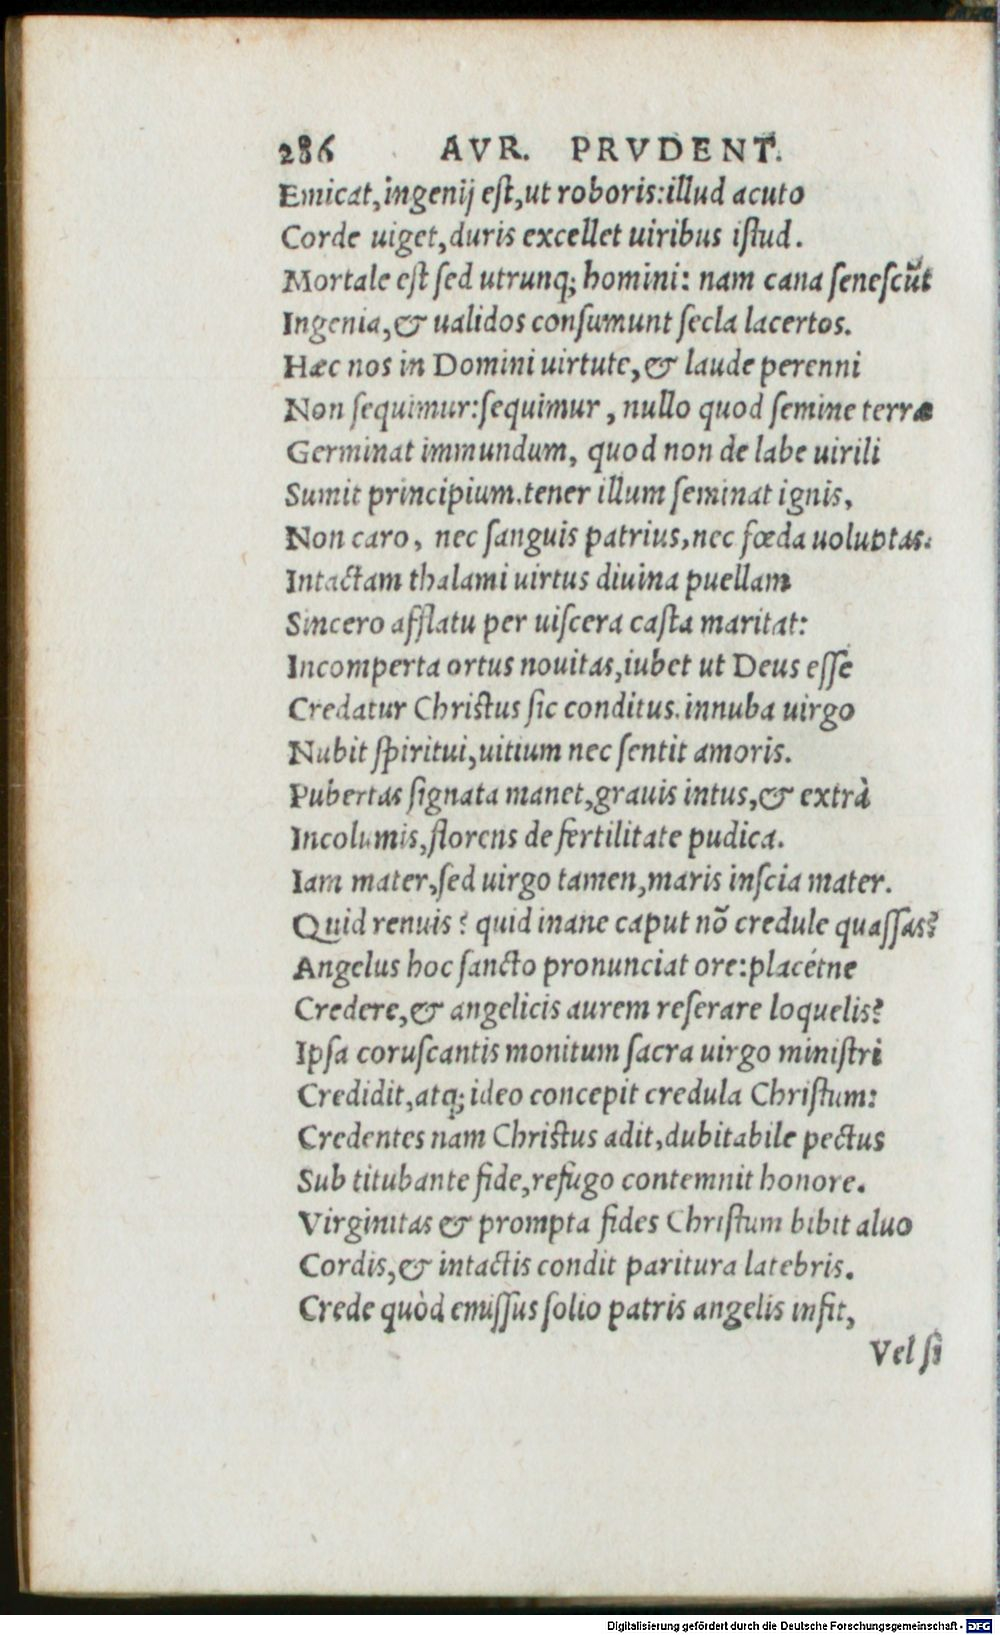 286 AVR. PRVDENT.
Emicat, ingenij est, ut roboris: illud acuto
Corde uiget, duris excellet uiribus istud.
Mortale est sed utrunq; homini: nam cana senescūt
Ingenia, & ualidos consumunt secla lacertos.
Hæc nos in Domini uirtute, & laude perenni
Non sequimur: sequimur, nullo quod semine terræ
Germinat immundum, quod non de labe uirili
Sumit principium. tener illum seminat ignis,
Non caro, nec sanguis patrius, nec fœda uoluptas.
Intactam thalami uirtus diuina puellam
Sincero afflatu per uiscera casta maritat:
Incomperta ortus nouitas, iubet ut Deus esse
Credatur Christus sic conditus. innuba uirgo
Nubit spiritui, uitium nec sentit amoris.
Pubertas signata manet, grauis intus, & extrà
Incolumis, florens de fertilitate pudica.
Iam mater, sed uirgo tamen, maris inscia mater.
Quid renuis? quid inane caput nō credule quassas?
Angelus hoc sancto pronunciat ore: placétne
Credere, & angelicis aurem reserare loquelis?
Ipsa coruscantis monitum sacra uirgo ministri
Credidit, atq; ideo concepit credula Christum:
Credentes nam Christus adit, dubitabile pectus
Sub titubante fide, refugo contemnit honore.
Virginitas & prompta fides Christum bibit aluo
Cordis, & intactis condit paritura latebris.
Crede quòd emissus solio patris angelis infit,
Vel si
Digitalisierung gefördert durch die Deutsche Forschungsgemeinschaft - DFG